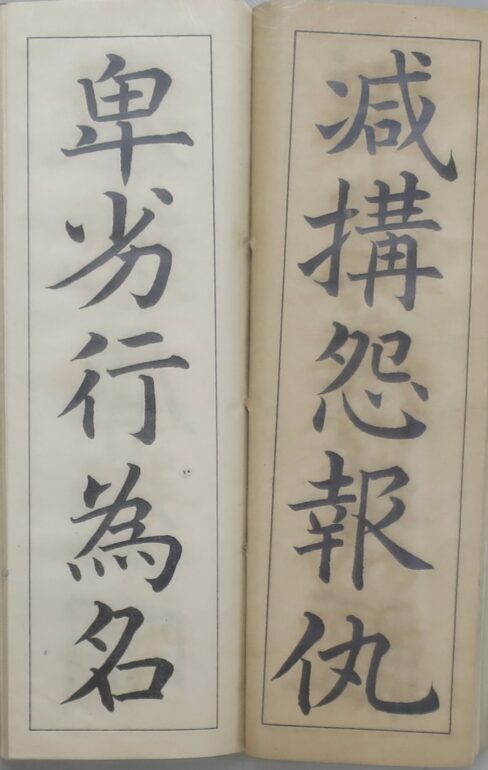 减搆怨報仇
卑劣行為名